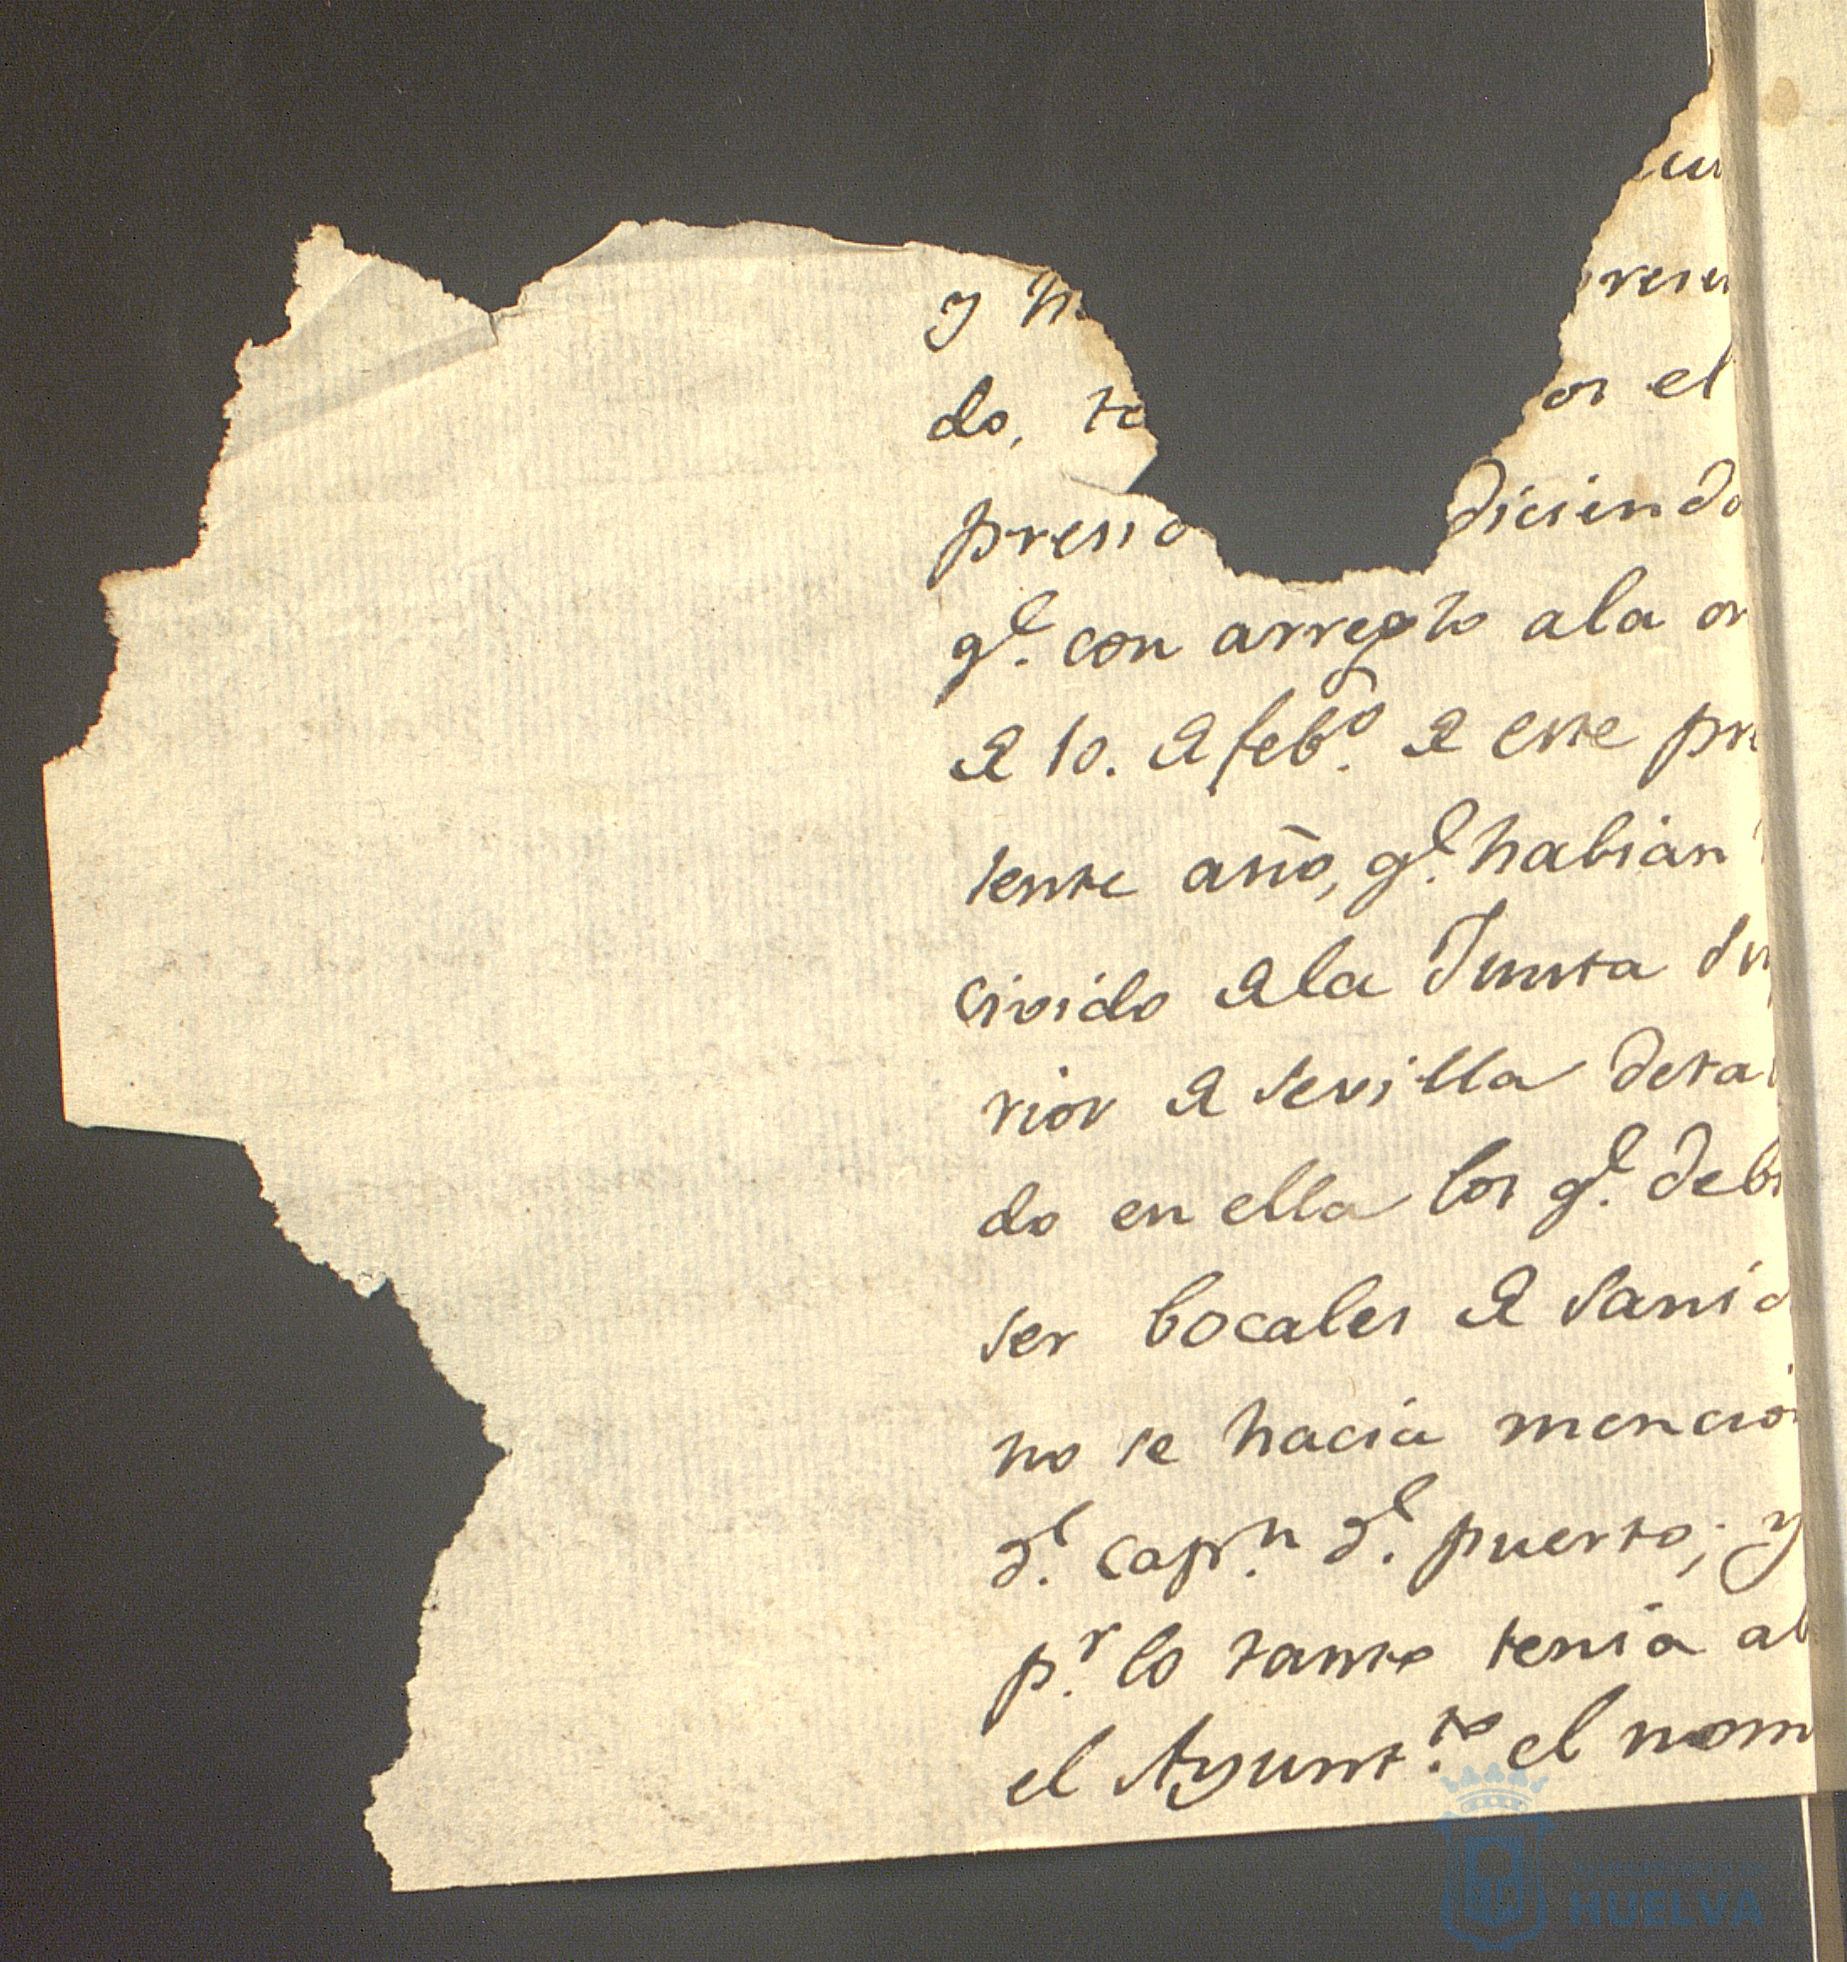 y
do,
diciendo
q.^e con arreglo a la or
de 10. de feb.^o de este pre
sente año, q.^e habian
civido de la Junta Sup
rior de Sevilla deta
do en ella los q.^e debi
ser bocales de Sanid
no se hacia mencio
d.^l cap.^n d.^l puerto; y
p.^r lo tanto tenia
el Ayunt.^to el nom
HUELVA